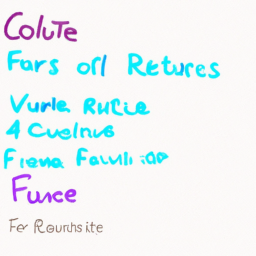 Colute
Fars orl Retures
Vurle Rucie
4 Cuelnus
Fiena Fauuli
Fuuce
Fer Rounhs ite